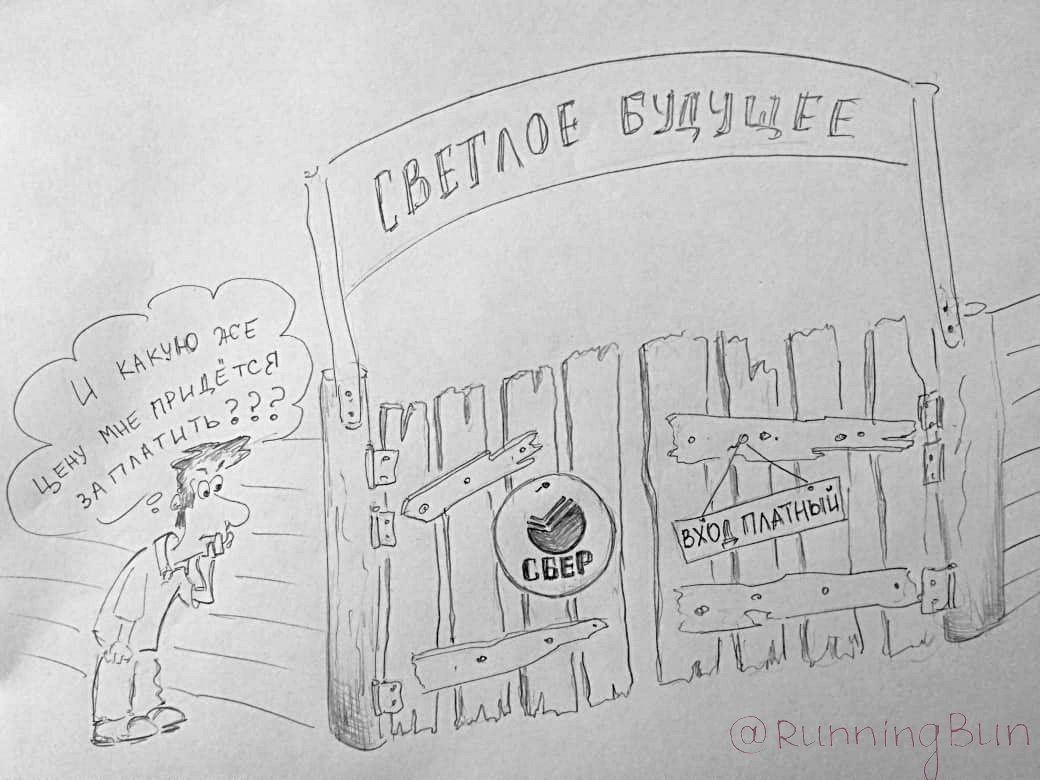 СВЕТЛОЕ БУДУЩЕЕ
И КАКУЮ ЖЕ
ЦЕНУ МНЕ ПРИДЁТСЯ
ЗАПЛАТИТЬ???
СБЕР
ВХОД ПЛАТНЫЙ
@RunningBun